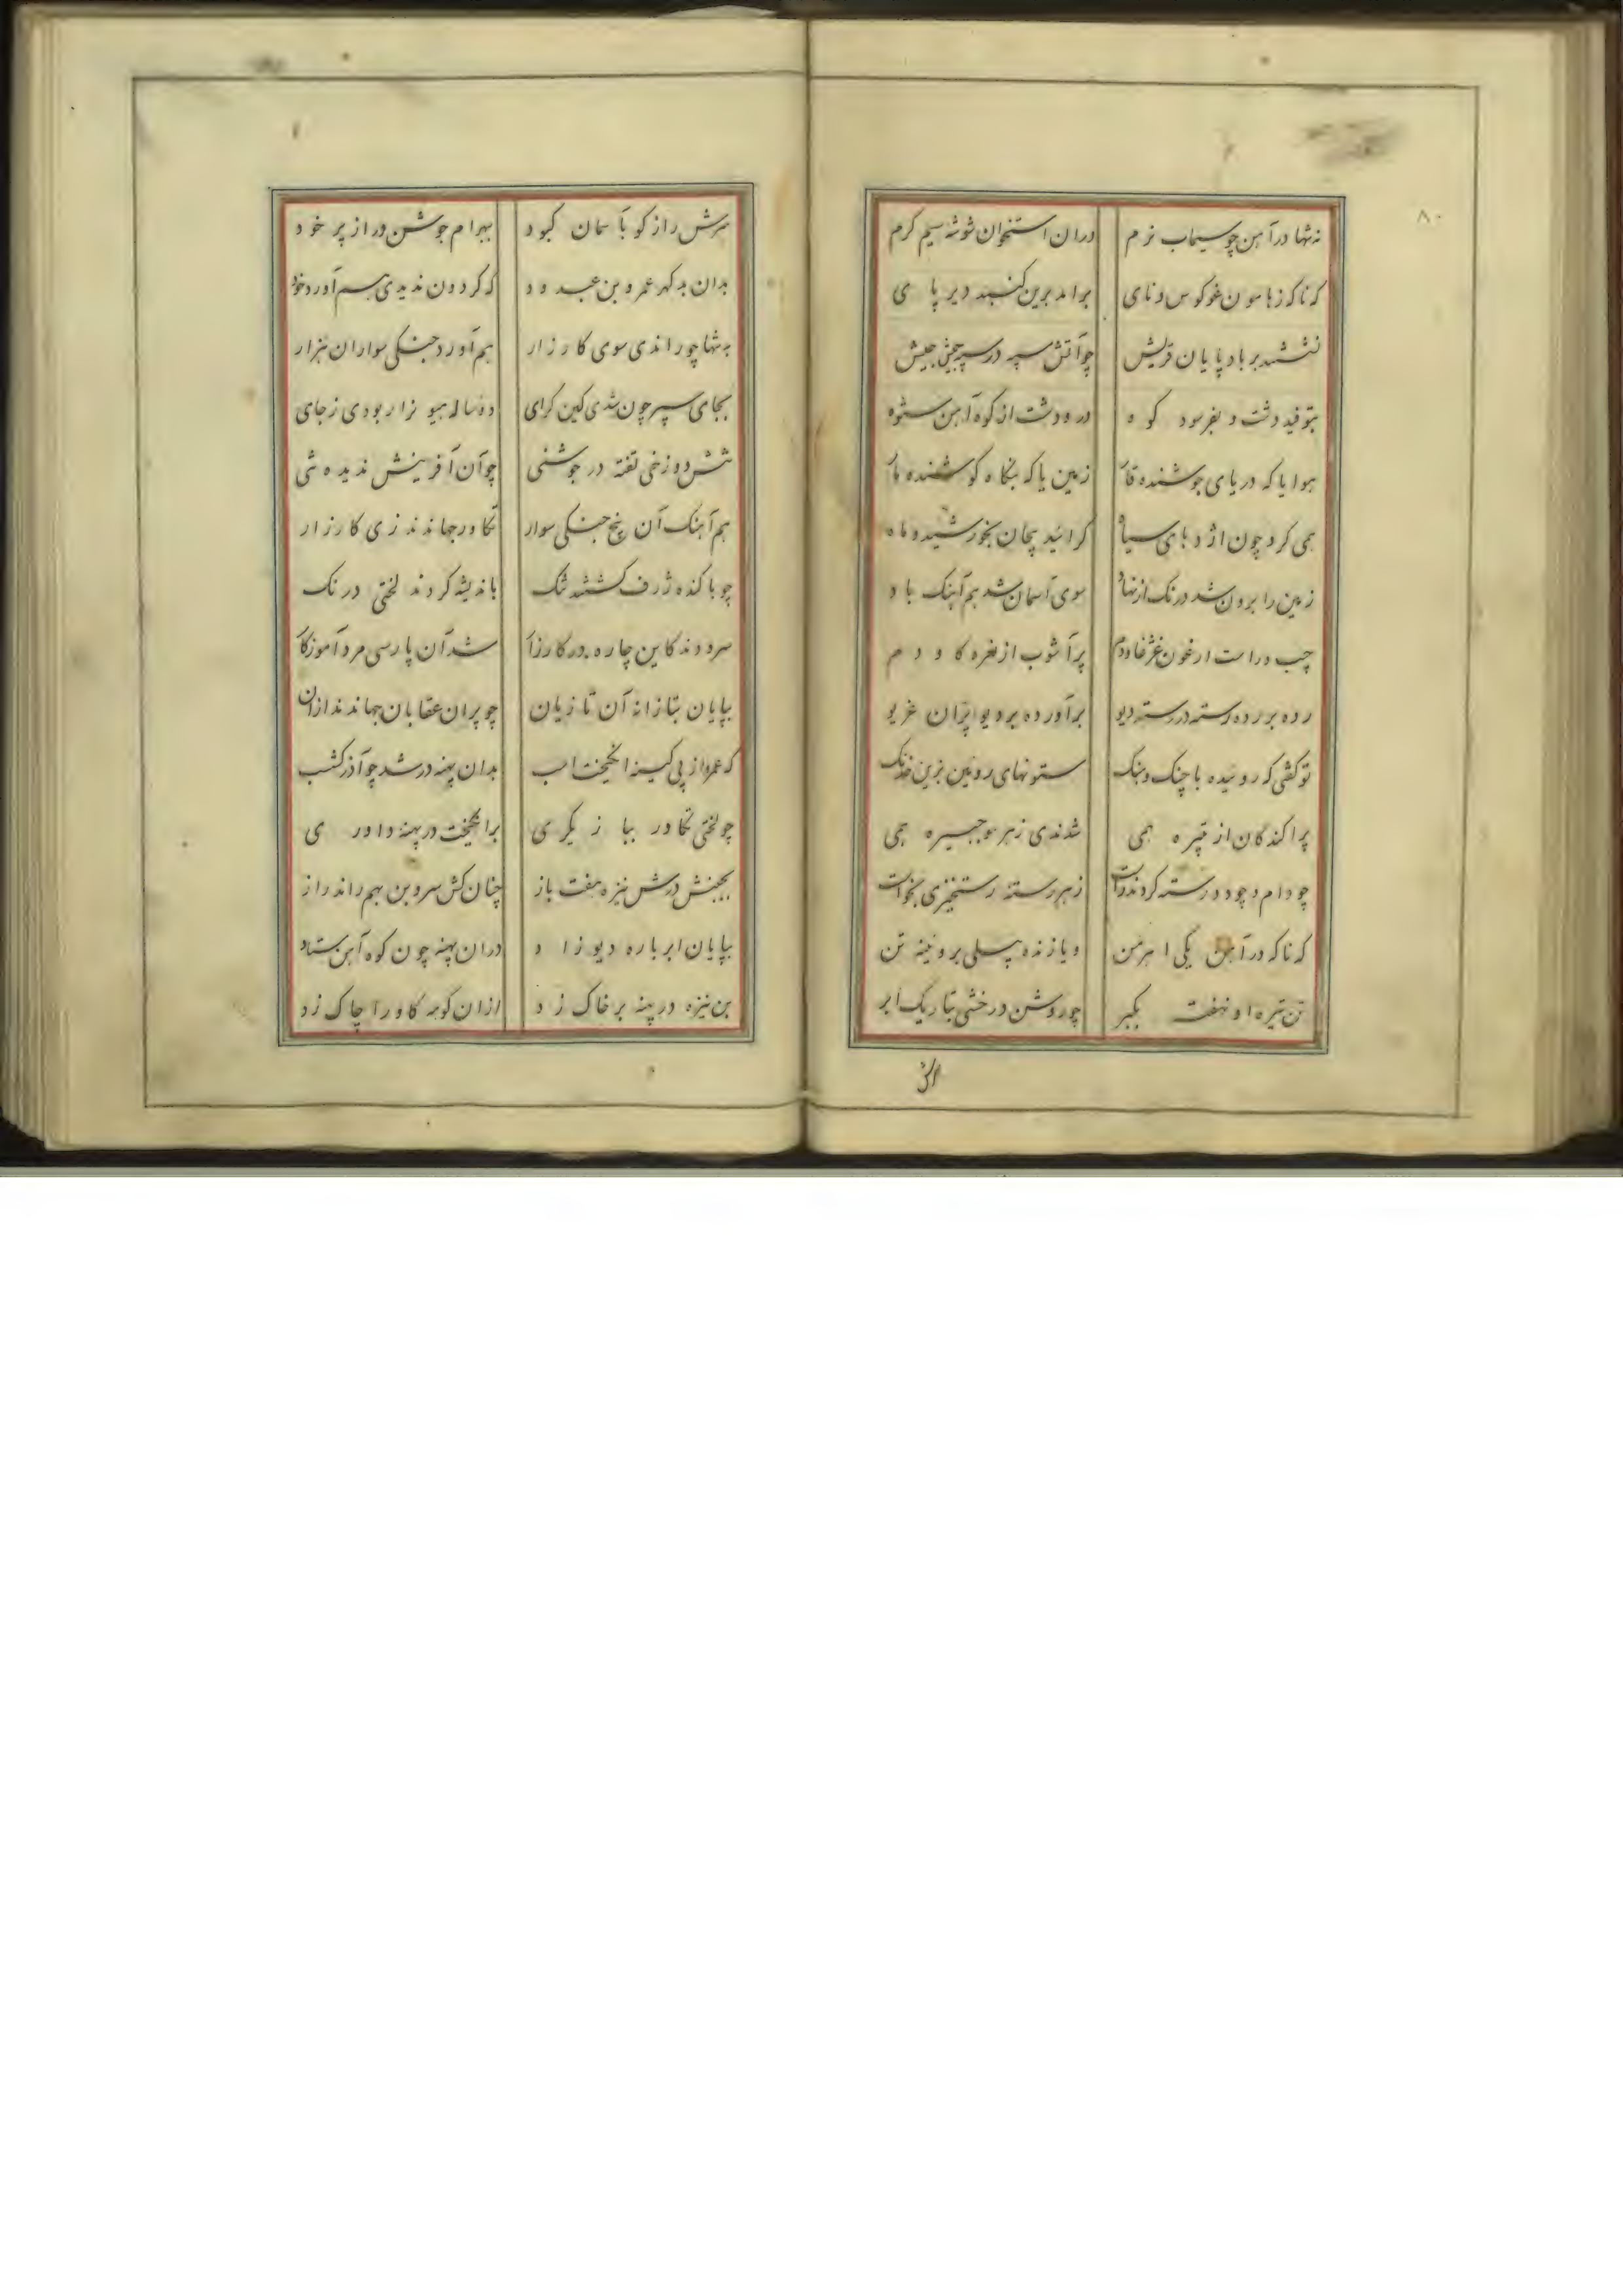 ۸۰
نه تنها در آهن چو سیماب نرم در ان استخوان شوشه سیم کرم
کناکه ز هامون غو کوس و نای برامد برین کنبد دیر پا ی
نشستند بر باد پایان قریش چو آتش سپه در سپه جیش
بتوفید دشت و بفرسود کوه در و دشت از کوه آهن ستوه
هوا یا که دریای جوشنده قار زمین یا که بنگاه کوشنده مار
همی کرد چون اژدهای سیاه کرائید پیچان بخورشید و ماه
زمین را برون شد درنک از نهاد سوی آسمان شد هم آهنک باد
چپ و راست ارغون غژغاو دم پر آشوب از نعره کاو دم
رده بر رده رسته در رسته دیو برآورده بر دیو ایران غریو
تو کفتی که روئیده با چنک و ننک ستونهای روئین برین خدنک
پراکندکان از تیره همی شدندی زهر سو جبیره همی
چو دام و چو دد رسته کردند راست زهر رسته رستخیزی بخواست
کناکه در آهن یکی اهرمن و یا زنده پیلی بروئینه تن
تن تیره او نهفت بکبر چو روشن درخشی بتاریک ابر
سرش
سرش راز کو با سمان کبود ببهرام جوشن در از پر خود
بدان بد کهر عمرو بن عبدود که کردون ندیدی هم آورد خود
به تنها چو راندی سوی کارزار هم آورد جنکی سواران هزار
بجای سپر چون شدی کین کرای ده ساله هیو نزا ربودی زجای
تنش دوزخی تفته در جوشنی چو آن آفرینش ندیده تنی
هم آهنک آن پنج جنکی سوار تکاور جهاندند زی کارزار
چو با کنده ژرف کشتند تنک باندیشه کردند لختی درنک
سرودند کاین چاره در کارزار شد آن پارسی مرد آموزکار
بپایان بتازانه آن تازیان چو پران عقابان جهاندند ازان
که عمرو از پی کینه انکیخت اسب بدان پهنه در شد چو آذرکشسب
چو لختی تکاور ببازیکری برانکیخت در پهنه داوری
بجنبش درش نیزه هفت باز چنان کش سر و بن بهم راند راز
بپایان ابر باره دیوزاد در ان پهنه چون کوه آهن ستاد
بن نیزه در پهنه بر خاک زد ازان کوهه کاو را چاک زد